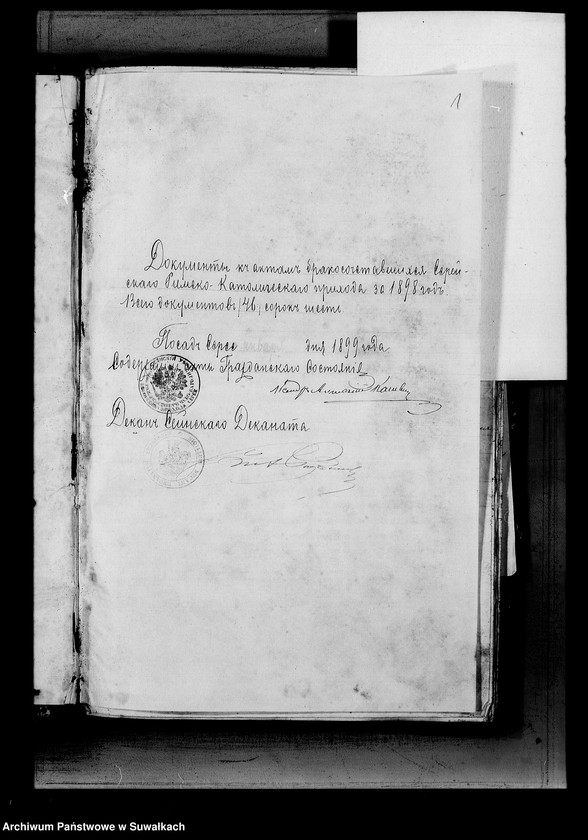 1
Документы къ актамъ бракосочетавшихся Серей-
скаго Римско-Католическаго прихода за 1898 годъ.
Всего документовъ /46/ сорокъ шесть.
Посадъ Сереє января дня 1899 года
Содержащій акты Гражданскаго Состоянія
Деканъ Сейнскаго Деканата
Archiwum Państwowe w Suwałkach